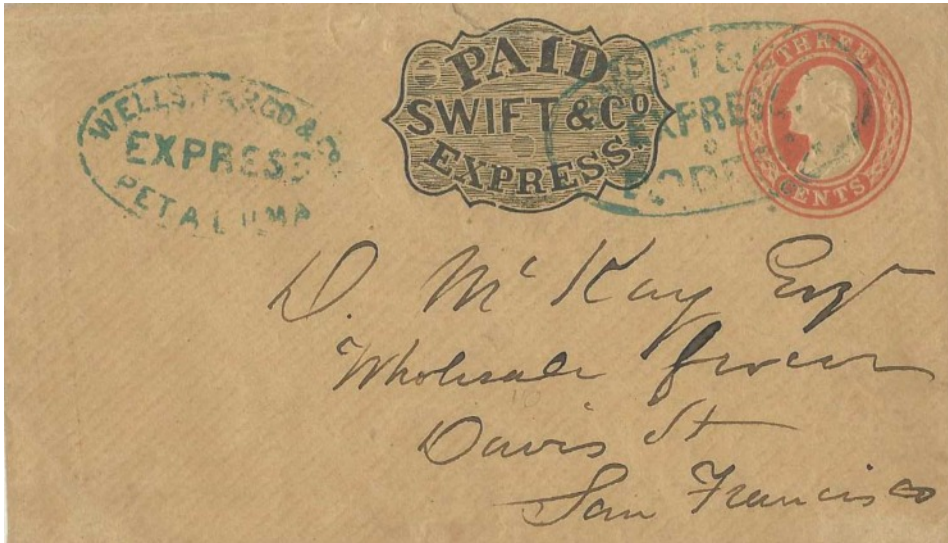 WELLS, FARGO & Co
EXPRESS
PETALUMA
PAID
SWIFT & Co
EXPRESS.
SWIFT & Co
EXPRESS
THREE
CENTS
D. McKay Esqr
Wholesale Grocer
Davis St
San Francisco